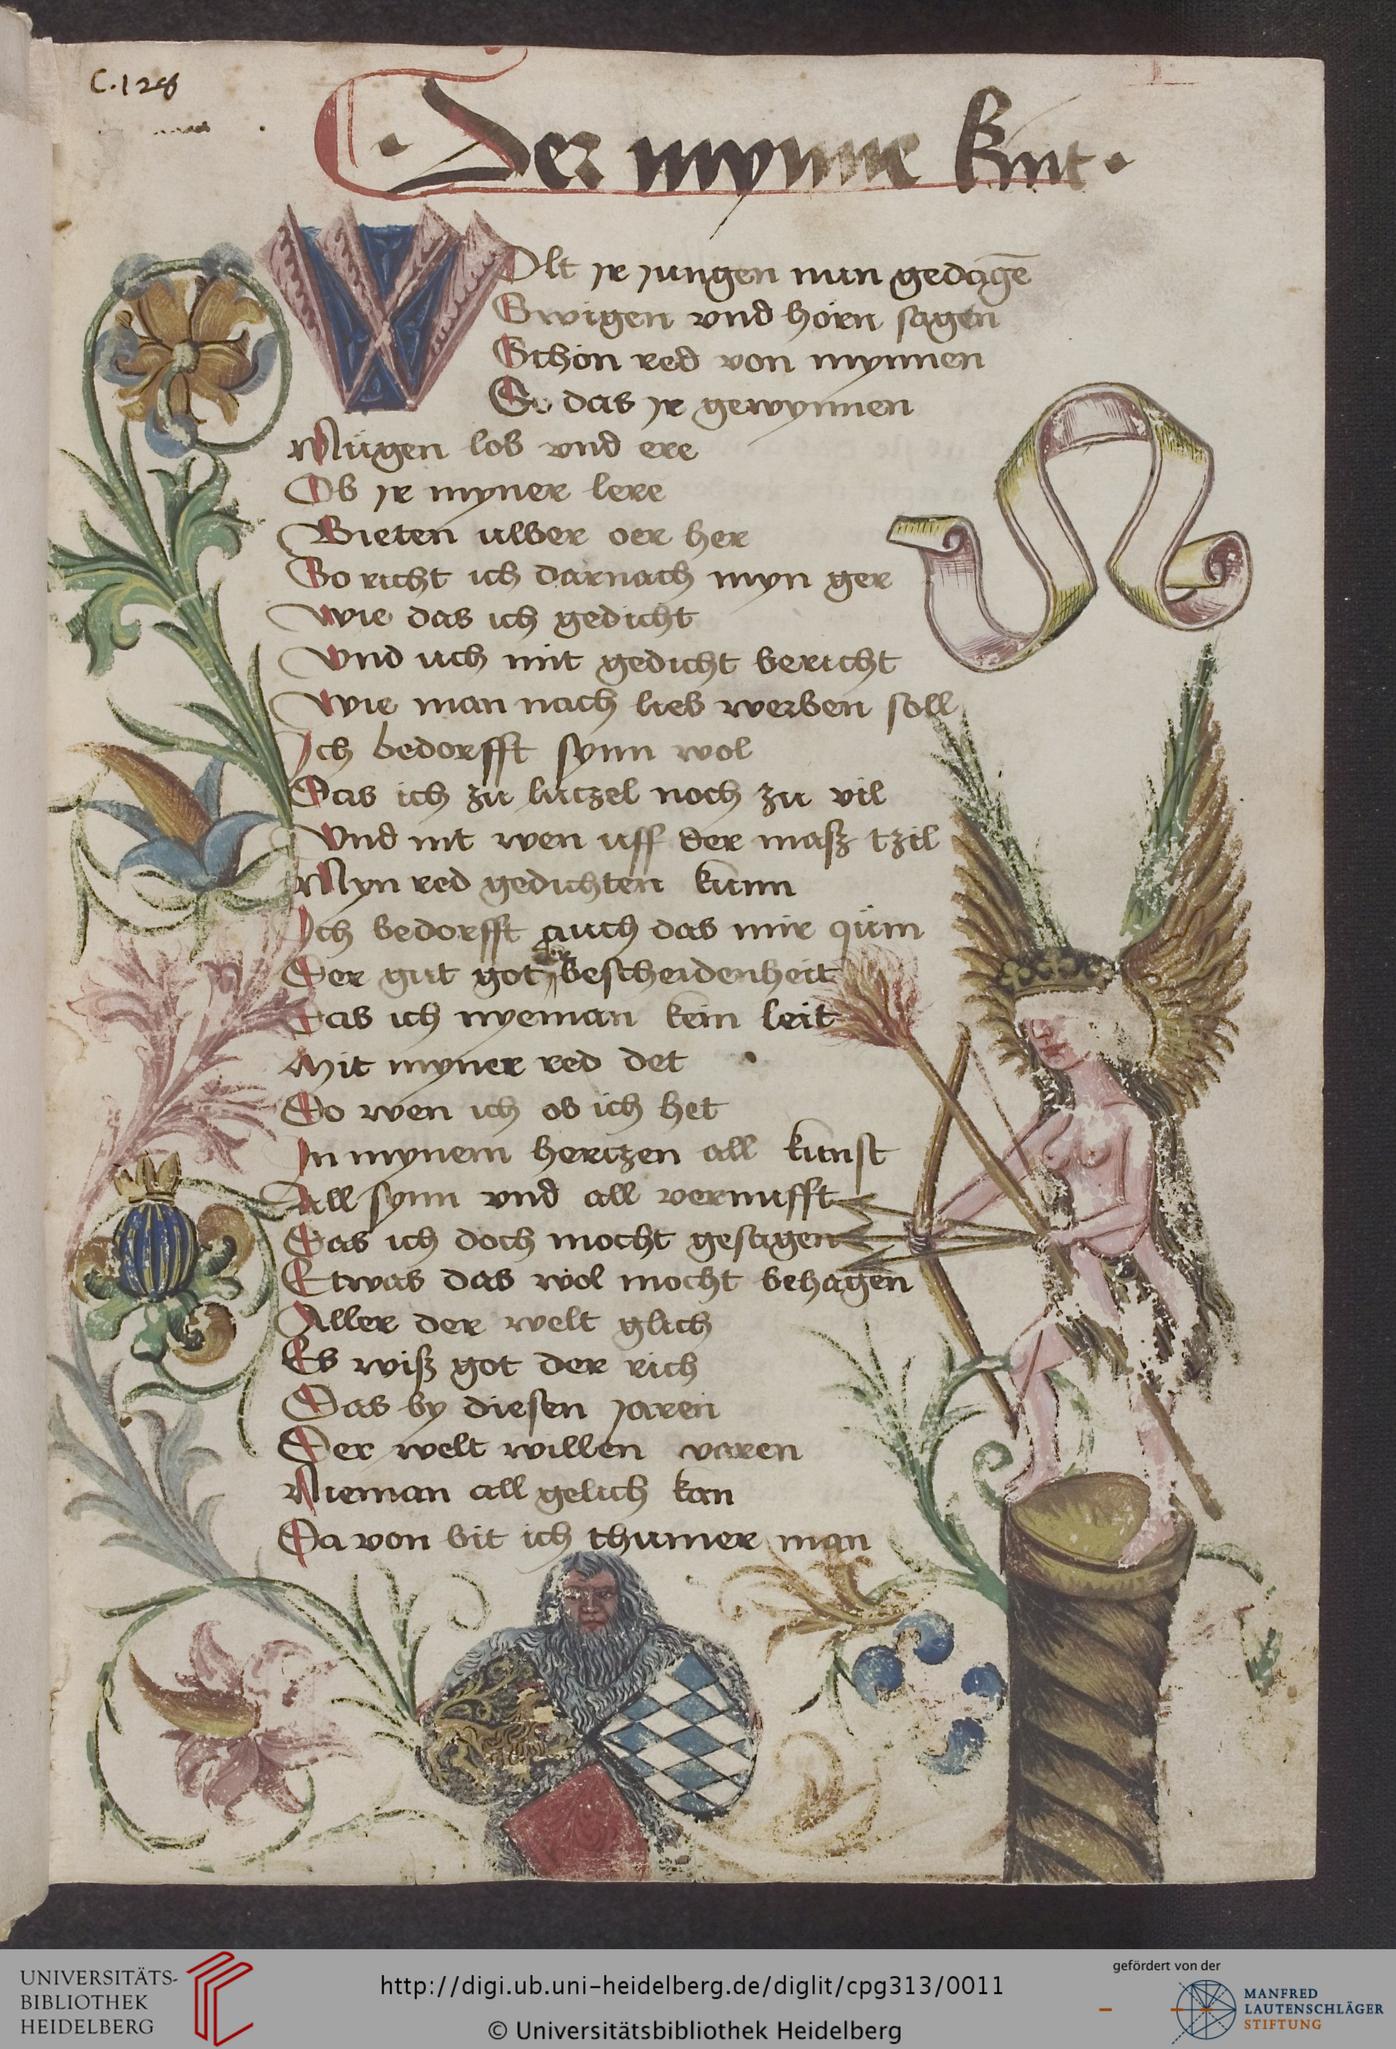 C. 128
Der mynne kint
Wolt jr jungen nun gedagē
Swigen vnd hörn sagen
Schön red von mynnen
So das jr gewynnen
Mügen lob vnd ere
Ob jr myner lere
Bieten uwer oer her
So richt ich darnach myn ger
Wie das ich gedicht
Vnd uch mit gedicht bericht
Wie man nach lieb werben soll
Ich bedorfft synn wol
Das ich zu lutzel noch zu vil
Vnd nit wen uff der masz tzil
Myn red gedichten kunn
Ich bedorfft auch das mir qüm
Der gut got bescheidenheit
Das ich nyeman kein leit
Mit myner red det
Do wen ich ob ich het
In mynem hertzen all kunst
All synn vnd all vernufft
Das ich doch mocht gesagen
Etwas das wol mocht behagen
Aller der welt glich
Es wisz got der rich
Das by diesen jaren
Der welt willen varen
Nieman all gelich kan
Da von bit ich thumer man
UNIVERSITÄTS-
BIBLIOTHEK
HEIDELBERG
http://digi.ub.uni-heidelberg.de/diglit/cpg313/0011
© Universitätsbibliothek Heidelberg
gefördert von der
MANFRED
LAUTENSCHLÄGER
STIFTUNG